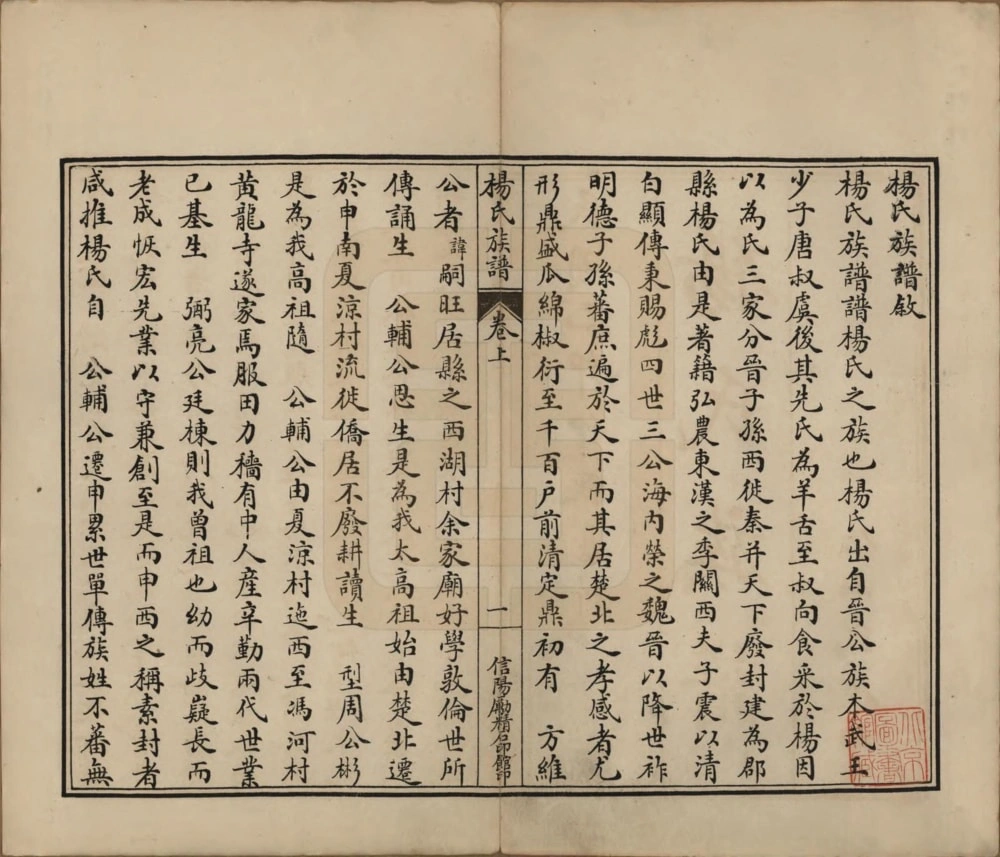 楊氏族譜敘
楊氏族譜譜楊氏之族也楊氏出自晉公族本武王
少子唐叔虞後其先氏為羊舌至叔向食采於楊因
以為氏三家分晉子孫西徙秦并天下廢封建為郡
縣楊氏由是著籍弘農東漢之季關西夫子震以清
白顯傳秉賜彪四世三公海內榮之魏晉以降世祚
明德子孫蕃庶遍於天下而其居楚北之孝感者尤
形鼎盛瓜綿椒衍至千百戶前清定鼎初有 方維
楊氏族譜 卷上 一 信陽勵精品館印
公者諱嗣旺居縣之西湖村余家廟好學敦倫世所
傳誦生 公輔公恩生是為我太高祖始由楚北遷
於申南夏涼村流徙僑居不廢耕讀生 型周公彬
是為我高祖隨 公輔公由夏涼村迤西至馮河村
黃龍寺遂家焉服田力穡有中人產辛勤兩代世業
已基生 弼亮公廷棟則我曾祖也幼而歧嶷長而
老成恢宏先業以守兼創至是而申西之稱素封者
咸推楊氏自 公輔公遷申累世單傳族姓不蕃無